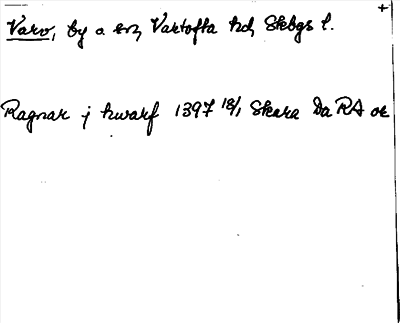 +
Varv, by o sn, Vartofta hd, Skbgs l.
Ragnar j hwarf 1397 18/1 Skara Da RA or